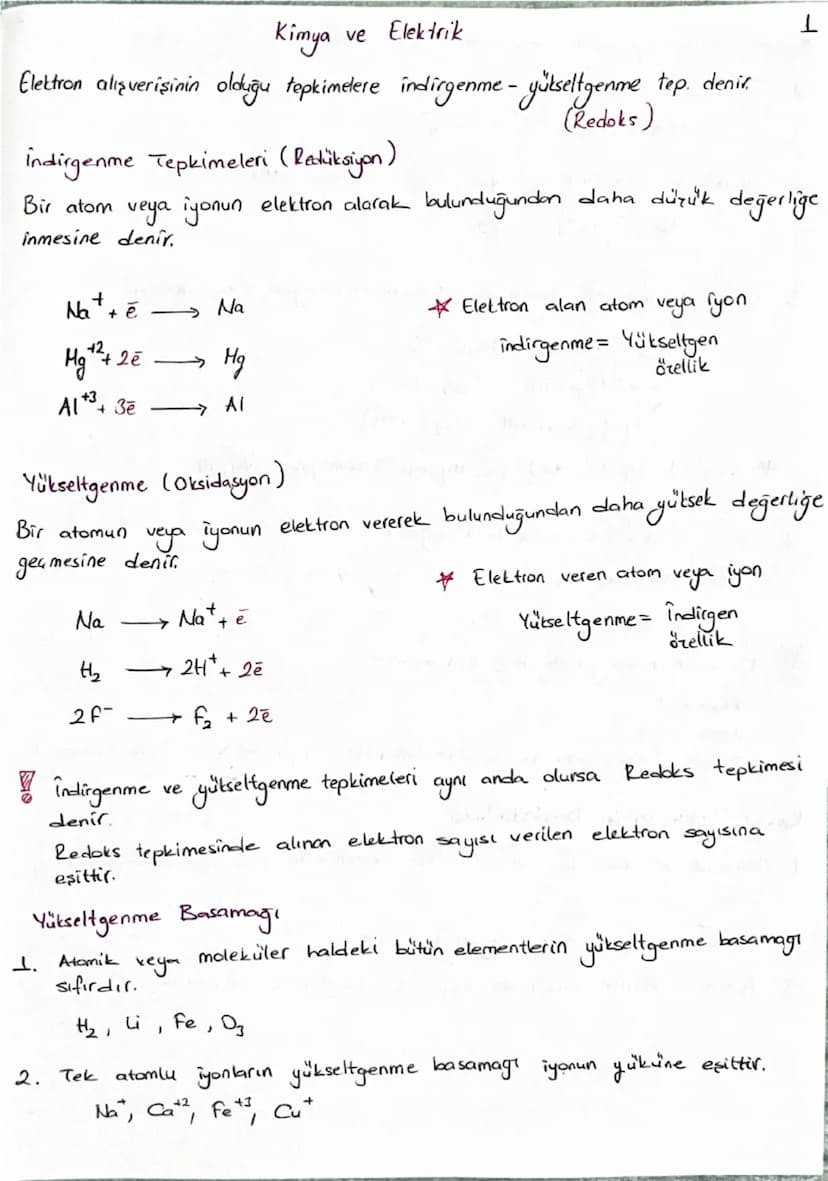 Kimya ve Elektrik
1
Elektron alışverişinin olduğu tepkimelere indirgenme - yükseltgenme tep. denir.
(Redoks)
İndirgenme Tepkimeleri (Redüksiyon)
Bir atom veya iyonun elektron alarak bulunduğundan daha düşük değerliğe
inmesine denir.
Na⁺ + ē → Na
Hg⁺² + 2ē → Hg
Al⁺³ + 3ē → Al
* Elektron alan atom veya iyon
indirgenme = Yükseltgen
özellik
Yükseltgenme (Oksidasyon)
Bir atomun veya iyonun elektron vererek bulunduğundan daha yüksek değerliğe
geçmesine denir.
* Elektron veren atom veya iyon
Yükseltgenme = İndirgen
özellik
Na → Na⁺ + ē
H₂ → 2H⁺ + 2ē
2F⁻ → F₂ + 2ē
! İndirgenme ve yükseltgenme tepkimeleri aynı anda olursa Redoks tepkimesi
denir.
Redoks tepkimesinde alınan elektron sayısı verilen elektron sayısına
eşittir.
Yükseltgenme Basamağı
1. Atomik veya moleküler haldeki bütün elementlerin yükseltgenme basamağı
sıfırdır.
H₂, Li, Fe, O₃
2. Tek atomlu iyonların yükseltgenme basamağı iyonun yüküne eşittir.
Na⁺, Ca⁺², Fe⁺³, Cu⁺